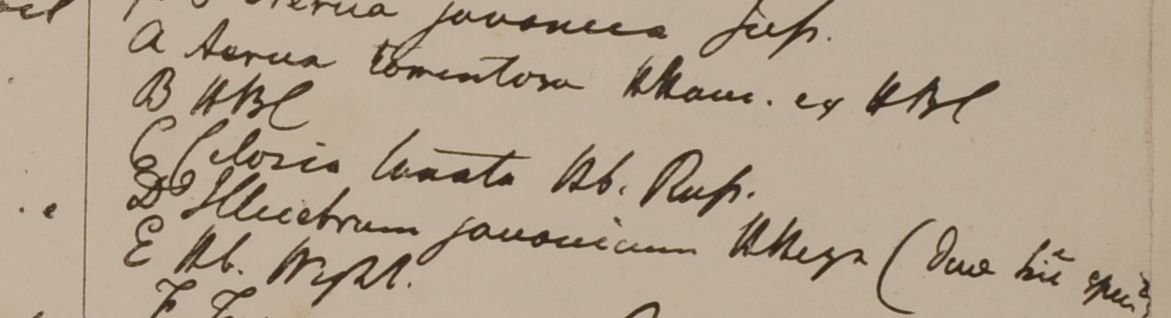 Aerua javanica Jusf.
A Aerua tomentosa HHam. ex HBC
B HBC
C Celosia lanata Hb. Rusf.
D Illecebrum javanicum HHeyn (duae hic speci
E Hb. Wight.
F